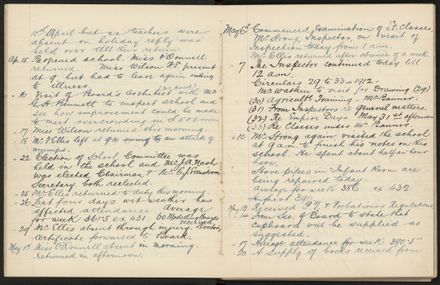 10th April but as teachers were
absent on holiday reply was
held over till their return.
Ap. 15. Reopened school. Miss O'Donnell
returned. Miss Wilson P.T. present
at 9 but had to leave again owing
to illness
16 Visit of Board's Architect
G.A. Bunnett to inspect school and
see how improvement could be made
to meet overcrowding in I S. room
17 Miss Wilson returned this morning.
18 Mr Ellis left at 9 10 owing to an attack of
mumps.
22 Election of School Committee was
held in the school and Mr J.A. Nash
was elected Chairman &
Secretary both reelected
25 Mr Ellis returned to duty this morning
26 Last four days wet weather has
affected attendance. Average
for week 361.5 ex 431
29 Mr Ellis absent through injury. Doctor's
certificate forwarded to Board.
May 1st Miss O'Donnell absent in morning
returned in afternoon.
May 6th Commenced Examination of St. Classes.
Mr Strong, Inspector, on visit of
Inspection today from 1 a.m.
Mr Ellis returned after absence of a week.
7 The Inspector continued today till
12 a.m.
Circulars 29 to 33 - 1912.
Mr Watkin to visit for Drawing (29)
(30) Agricult'l Training -
(31) From Inspectors re general matters.
(32) Re Empire Day - May 31st afternoon
(33) Re Classes under
10 Mr Strong again visited the school
at 9 a.m. to finish his notes on this
school. He spent about half an hour
here.
Stove pipes in Infant Room are
being repaired today.
Average for week 386 ex 432
May 13 Received P.T. & Probationers Regulations
14 From Sec. of Board to state that
cupboard will be supplied as
suggested.
17 Average attendance for week 390.5
20 A supply of books received from